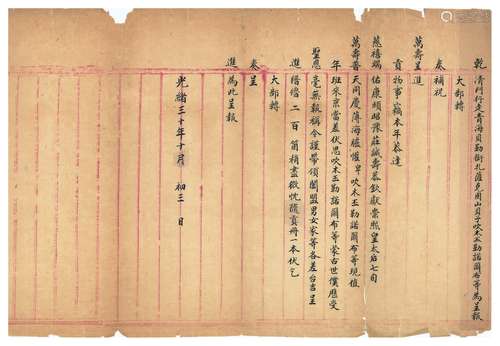 乾清門行走青海貝勒銜扎薩克固山貝子吹木丕勒諾爾布等為呈報
大部轉
奏補祝
萬壽呈進
貢物事竊本年恭逢
慈禧端佑康頤昭豫莊誠壽恭欽獻崇熙皇太后七旬
萬壽普天同慶薄海臚懽卑吹木丕勒諾爾布等現值
年班來京當差伏思吹木丕勒諾爾布等蒙古世僕歷受
聖恩毫無報稱今謹帶領闔盟男女家等各差台吉呈
進猞猁二百箇稍盡微忱隨貢冊一本伏乞
大部轉
奏呈
進為此呈報
光緒三十年十月初三日